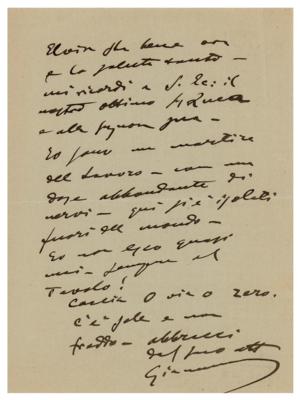 Elvira sta bene ora
e la saluta tanto –
mi ricordi a S. Ec: il
nostro ottimo
e alla signora sua –
Io sono un martire
del lavoro – con una
dose abbondante di
nervi – qui si è isolati
fuori del mondo –
Io non esco quasi
mai – sempre al
Tavolo!
Caccia 0 via 0 zero.
c'è sole e non
freddo – abbracci
dal suo aff